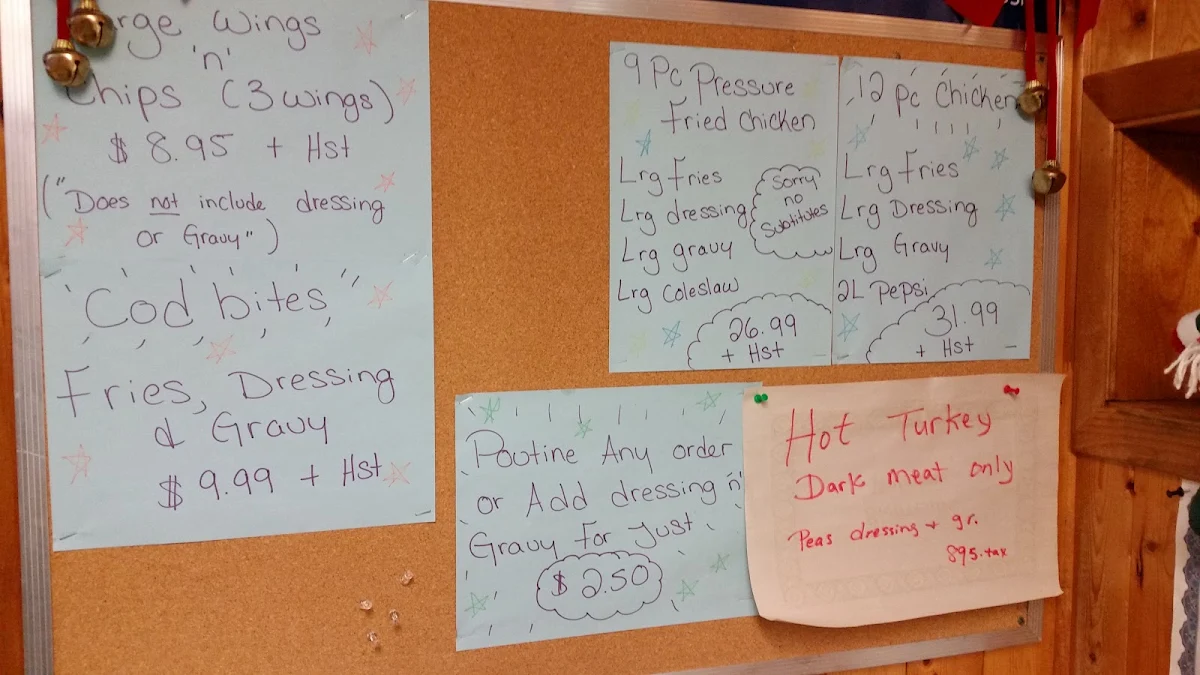 arge Wings
'n'
Chips (3 wings)
$ 8.95 + Hst
("Does not include dressing
or Gravy")
"Cod bites"
Fries, Dressing
& Gravy
$ 9.99 + Hst
9 Pc Pressure
Fried Chicken
Lrg Fries
Lrg dressing
Lrg gravy
Lrg Coleslaw
Sorry
no
Subtitutes
26.99
+ Hst
12 pc Chicken
Lrg Fries
Lrg Dressing
Lrg Gravy
2L Pepsi
31.99
+ Hst
Poutine Any order
or Add dressing 'n'
Gravy For Just
$ 2.50
Hot Turkey
Dark meat only
Peas dressing + gr.
895.tax